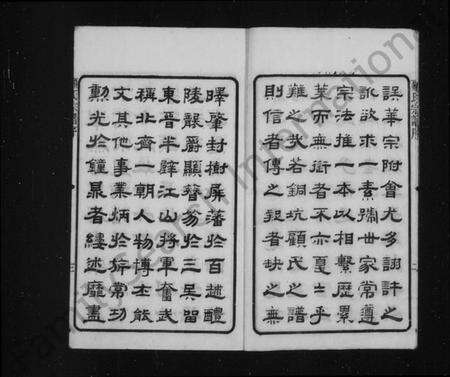 誤華宗附會尤多詡許之
訛欲求一素孺世家常遵
宗法推一本以相繫歷累
葉而無者不亦戛戛乎
難之哉若銅坑顧氏之譜
則信者傳之疑者缺之無
曄肇封樹屏藩於百越醴
陵襲爵顯簪笏於三吳留
東晉半壁江山將軍奮武
稱北齊一朝人物博士能
文其他事業炳於旂常功
勳光於鐘鼎者縷述靡盡